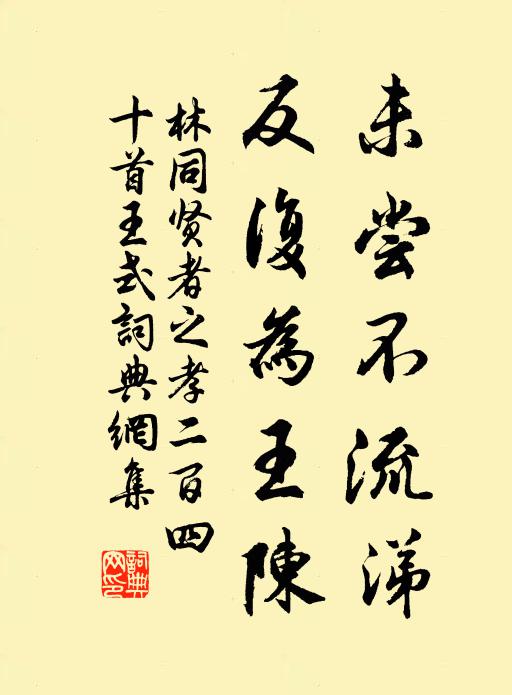 未尝不流涕
反復為王陳
林同贤者之孝二百四
十首王式詞典網集
詞典
网印